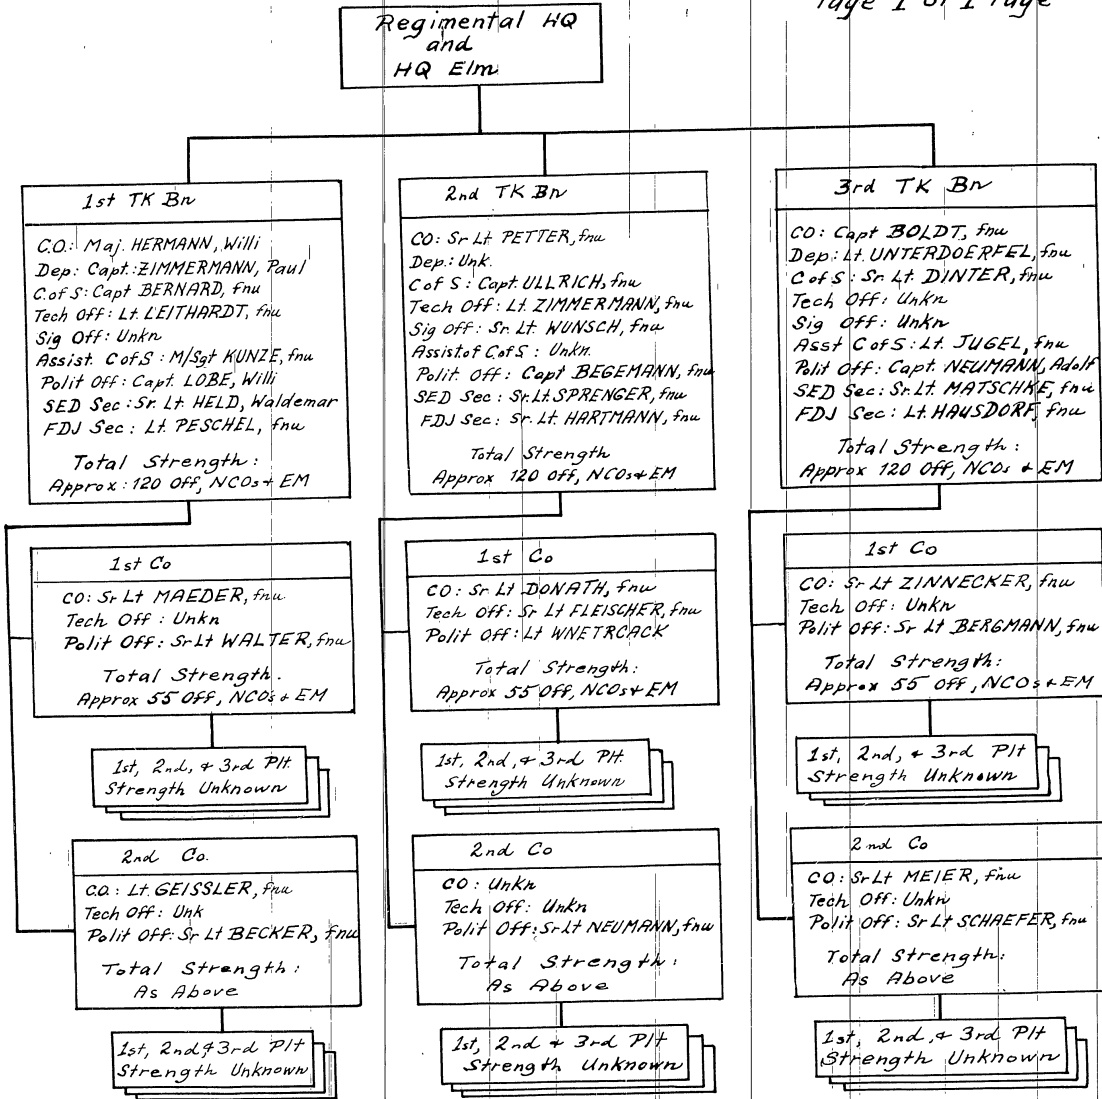 Page 1 of 1 Page
Regimental HQ
and
HQ Elm
1st TK Bn
C.O.: Maj. HERMANN, Willi
Dep: Capt.: ZIMMERMANN, Paul
C.of S: Capt BERNARD, fnu
Tech Off: Lt. LEITHARDT, fnu
Sig Off: Unkn
Assist. C of S: M/Sgt KUNZE, fnu
Polit Off: Capt. LOBE, Willi
SED Sec: Sr. Lt. HELD, Waldemar
FDJ Sec: Lt. PESCHEL, fnu
Total Strength:
Approx: 120 Off, NCOs + EM
1st Co
CO: Sr Lt MAEDER, fnu
Tech Off: Unkn
Polit Off: Sr Lt WALTER, fnu
Total Strength.
Approx 55 Off, NCOs + EM
1st, 2nd, + 3rd Plt.
Strength Unknown
2nd Co.
C.O.: Lt. GEISSLER, fnu
Tech Off: Unk
Polit Off: Sr Lt BECKER, fnu
Total Strength:
As Above
1st, 2nd, + 3rd Plt
Strength Unknown
2nd TK Bn
CO: Sr Lt. PETTER, fnu
Dep.: Unk.
C of S: Capt. ULLRICH, fnu
Tech Off: Lt. ZIMMERMANN, fnu
Sig Off: Sr. Lt. WUNSCH, fnu
Assist of C of S: Unkn.
Polit. Off: Capt BEGEMANN, fnu
SED Sec: Sr. Lt. SPRENGER, fnu
FDJ Sec: Sr. Lt. HARTMANN, fnu
Total Strength
Approx 120 Off, NCOs + EM
1st Co
CO: Sr Lt DONATH, fnu
Tech Off: Sr Lt FLEISCHER, fnu
Polit Off: Lt WNETRCACK
Total Strength:
Approx 55 Off, NCOs + EM
1st, 2nd, + 3rd Plt.
Strength Unknown
2nd Co
CO: Unkn
Tech Off: Unkn
Polit Off: Sr Lt NEUMANN, fnu
Total Strength:
As Above
1st, 2nd + 3rd Plt
Strength Unknown
3rd TK Bn
CO: Capt BOLDT, fnu
Dep: Lt. UNTERDOERFEL, fnu
C of S: Sr. Lt. DINTER, fnu
Tech Off: Unkn
Sig Off: Unkn
Asst C of S: Lt. JUGEL, fnu
Polit Off: Capt. NEUMANN, Adolf
SED Sec: Sr. Lt. MATSCHKE, fnu
FDJ Sec: Lt. HAUSDORF, fnu
Total Strength:
Approx 120 Off, NCOs + EM
1st Co
CO: Sr Lt ZINNECKER, fnu
Tech Off: Unkn
Polit Off: Sr Lt BERGMANN, fnu
Total Strength:
Approx 55 Off, NCOs + EM
1st, 2nd, + 3rd Plt
Strength Unknown
2nd Co
CO: Sr Lt MEIER, fnu
Tech Off: Unkn
Polit Off: Sr Lt SCHAEFER, fnu
Total Strength:
As Above
1st, 2nd, + 3rd Plt
Strength Unknown